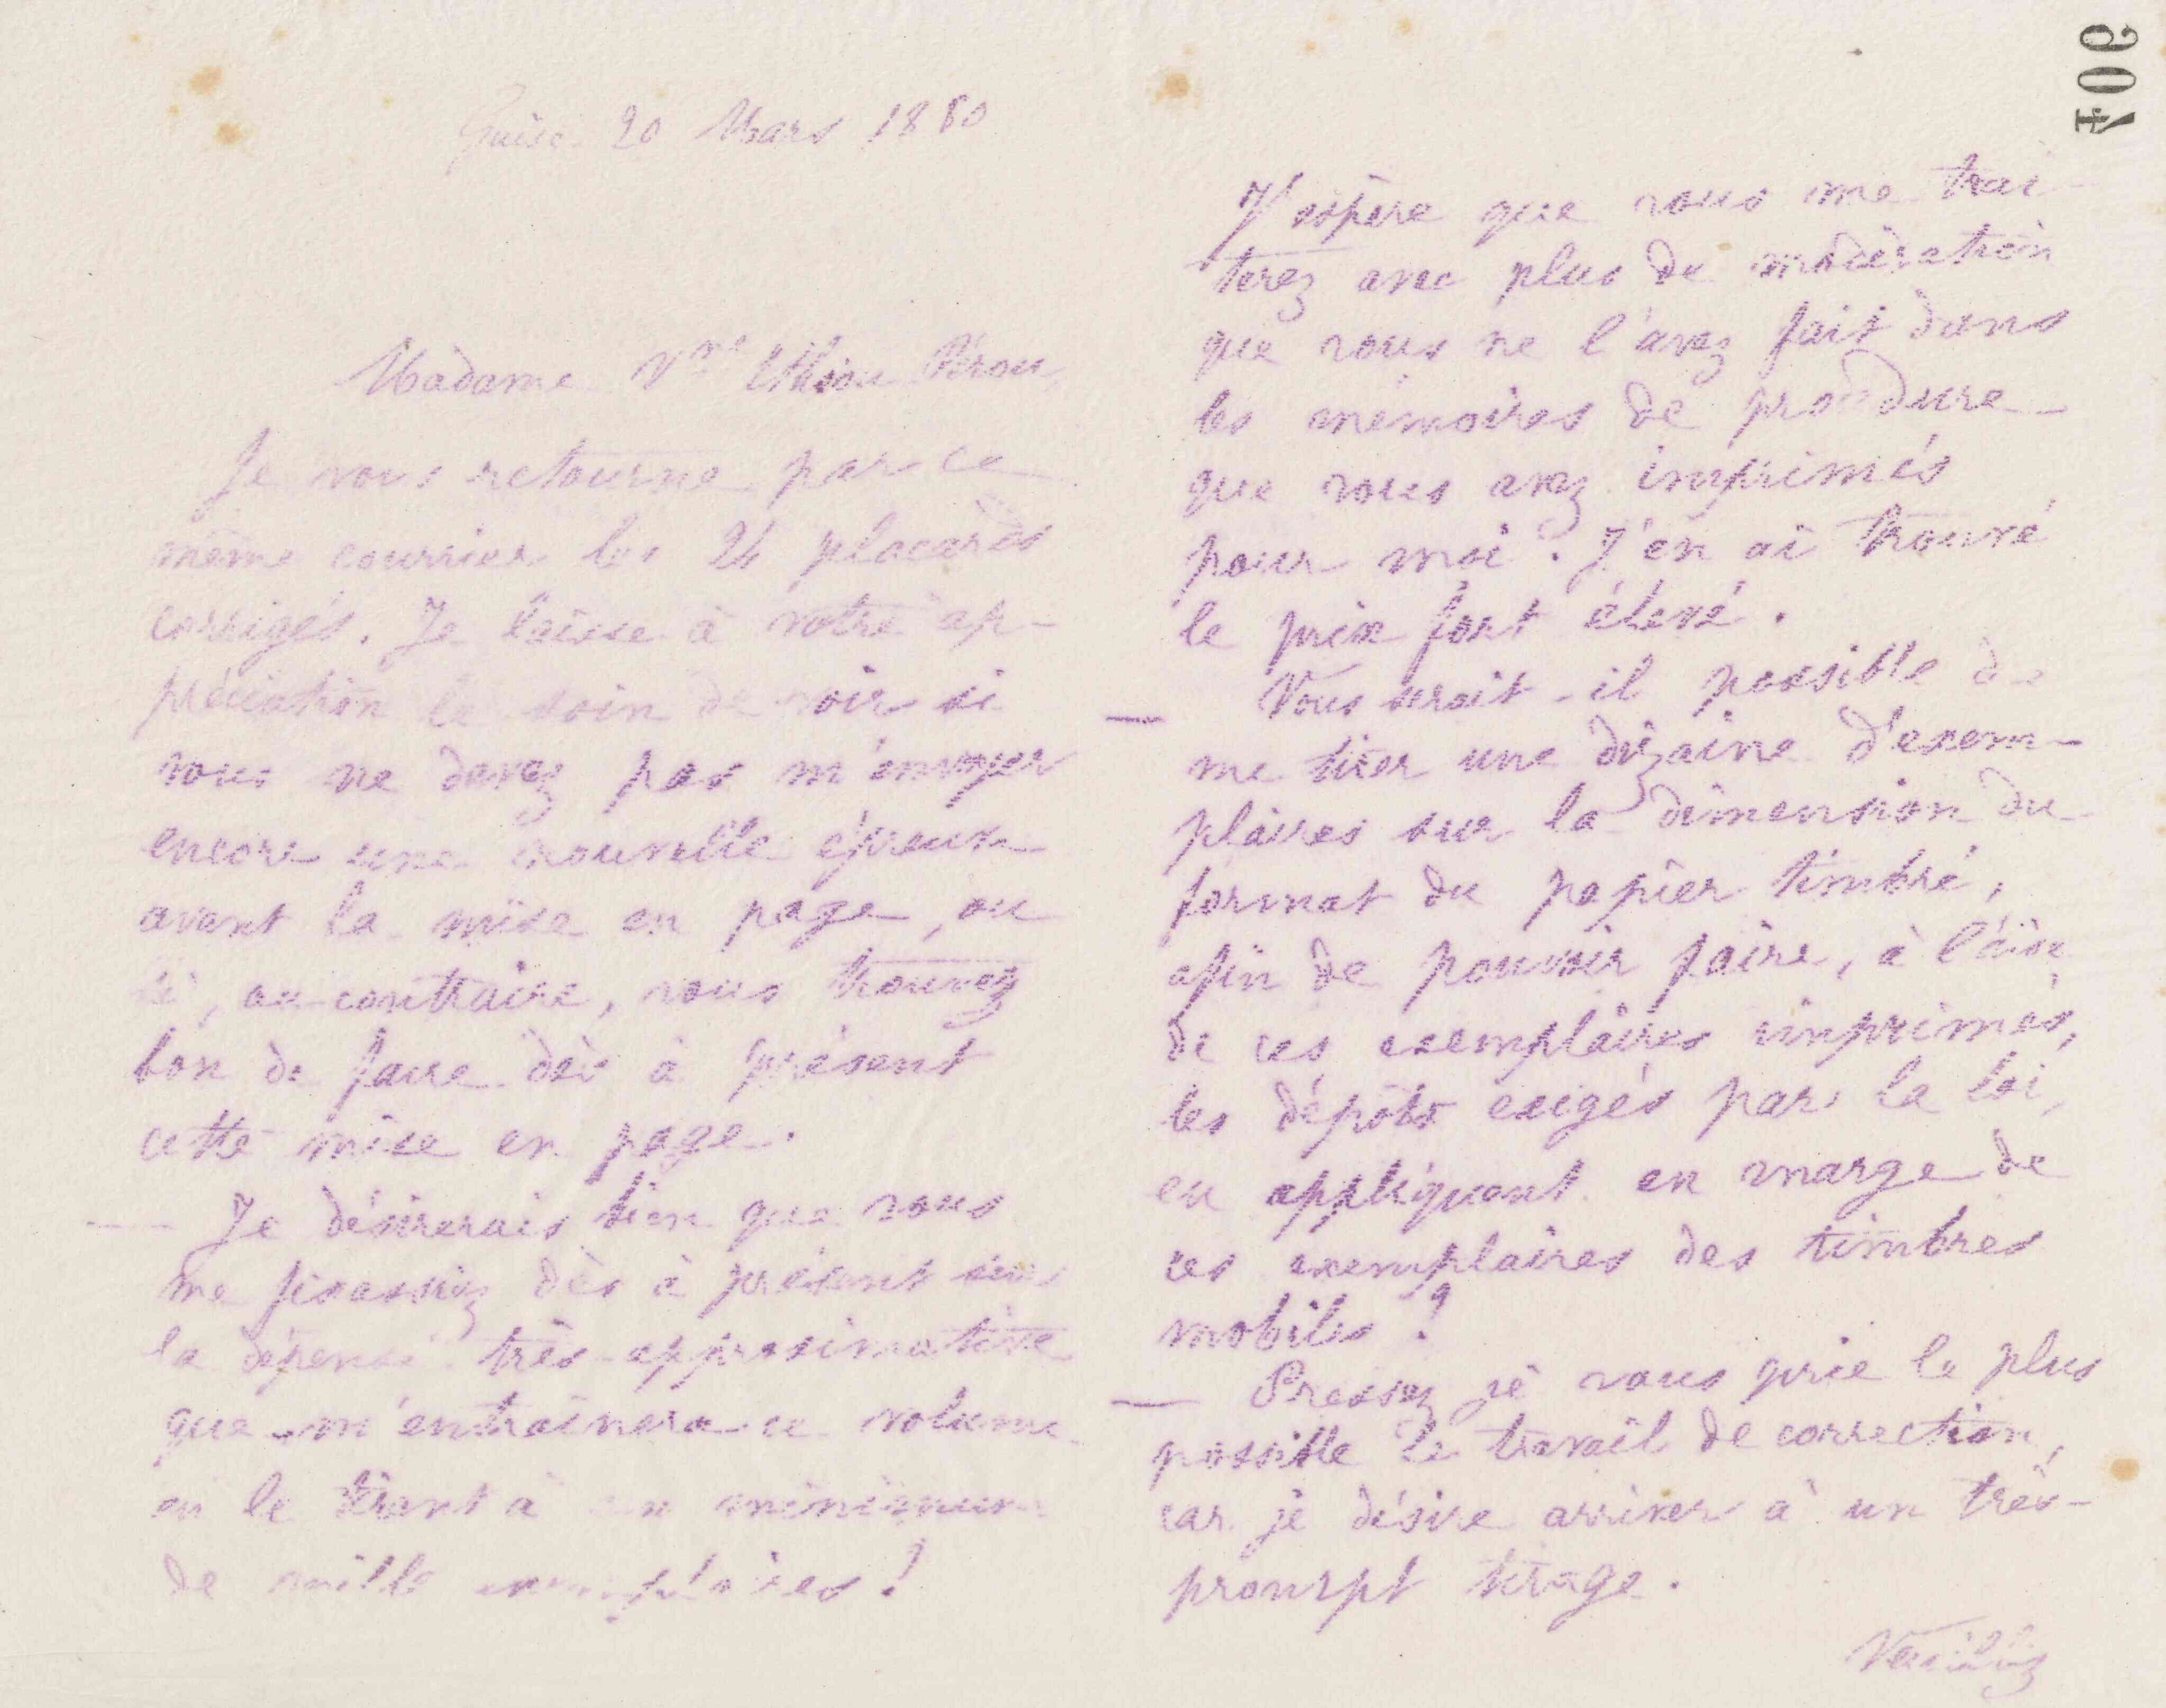 Guise 20 Mars 1880
Madame Vve Ethiou Pérou
Je vous retourne par ce
même courrier les 24 placards
corrigés. Je laisse à votre ap-
préciation le soin de voir si
vous ne devez pas m'envoyer
encore une nouvelle épreuve
avant la mise en page, ou
si, au contraire, vous trouvez
bon de faire dès à présent
cette mise en page.
— Je désirerais bien que vous
me fixassiez dès à présent sur
la dépense très approximative
que m'entraînera ce volume
en le tirant à un minimum
de mille exemplaires !
J'espère que vous me trai-
terez avec plus de modération
que vous ne l'avez fait dans
les mémoires de procédure
que vous avez imprimés
pour moi. J'en ai trouvé
le prix fort élevé.
— Vous serait-il possible de
me tirer une dizaine d'exem-
plaires sur la dimension du
format du papier timbré,
afin de pouvoir faire, à l'aide
de ces exemplaires imprimés,
les dépôts exigés par la loi,
en appliquant en marge de
ces exemplaires des timbres
mobiles ?
— Pressez je vous prie le plus
possible le travail de correction,
car je désire arriver à un très-
prompt tirage.
Veuillez
406